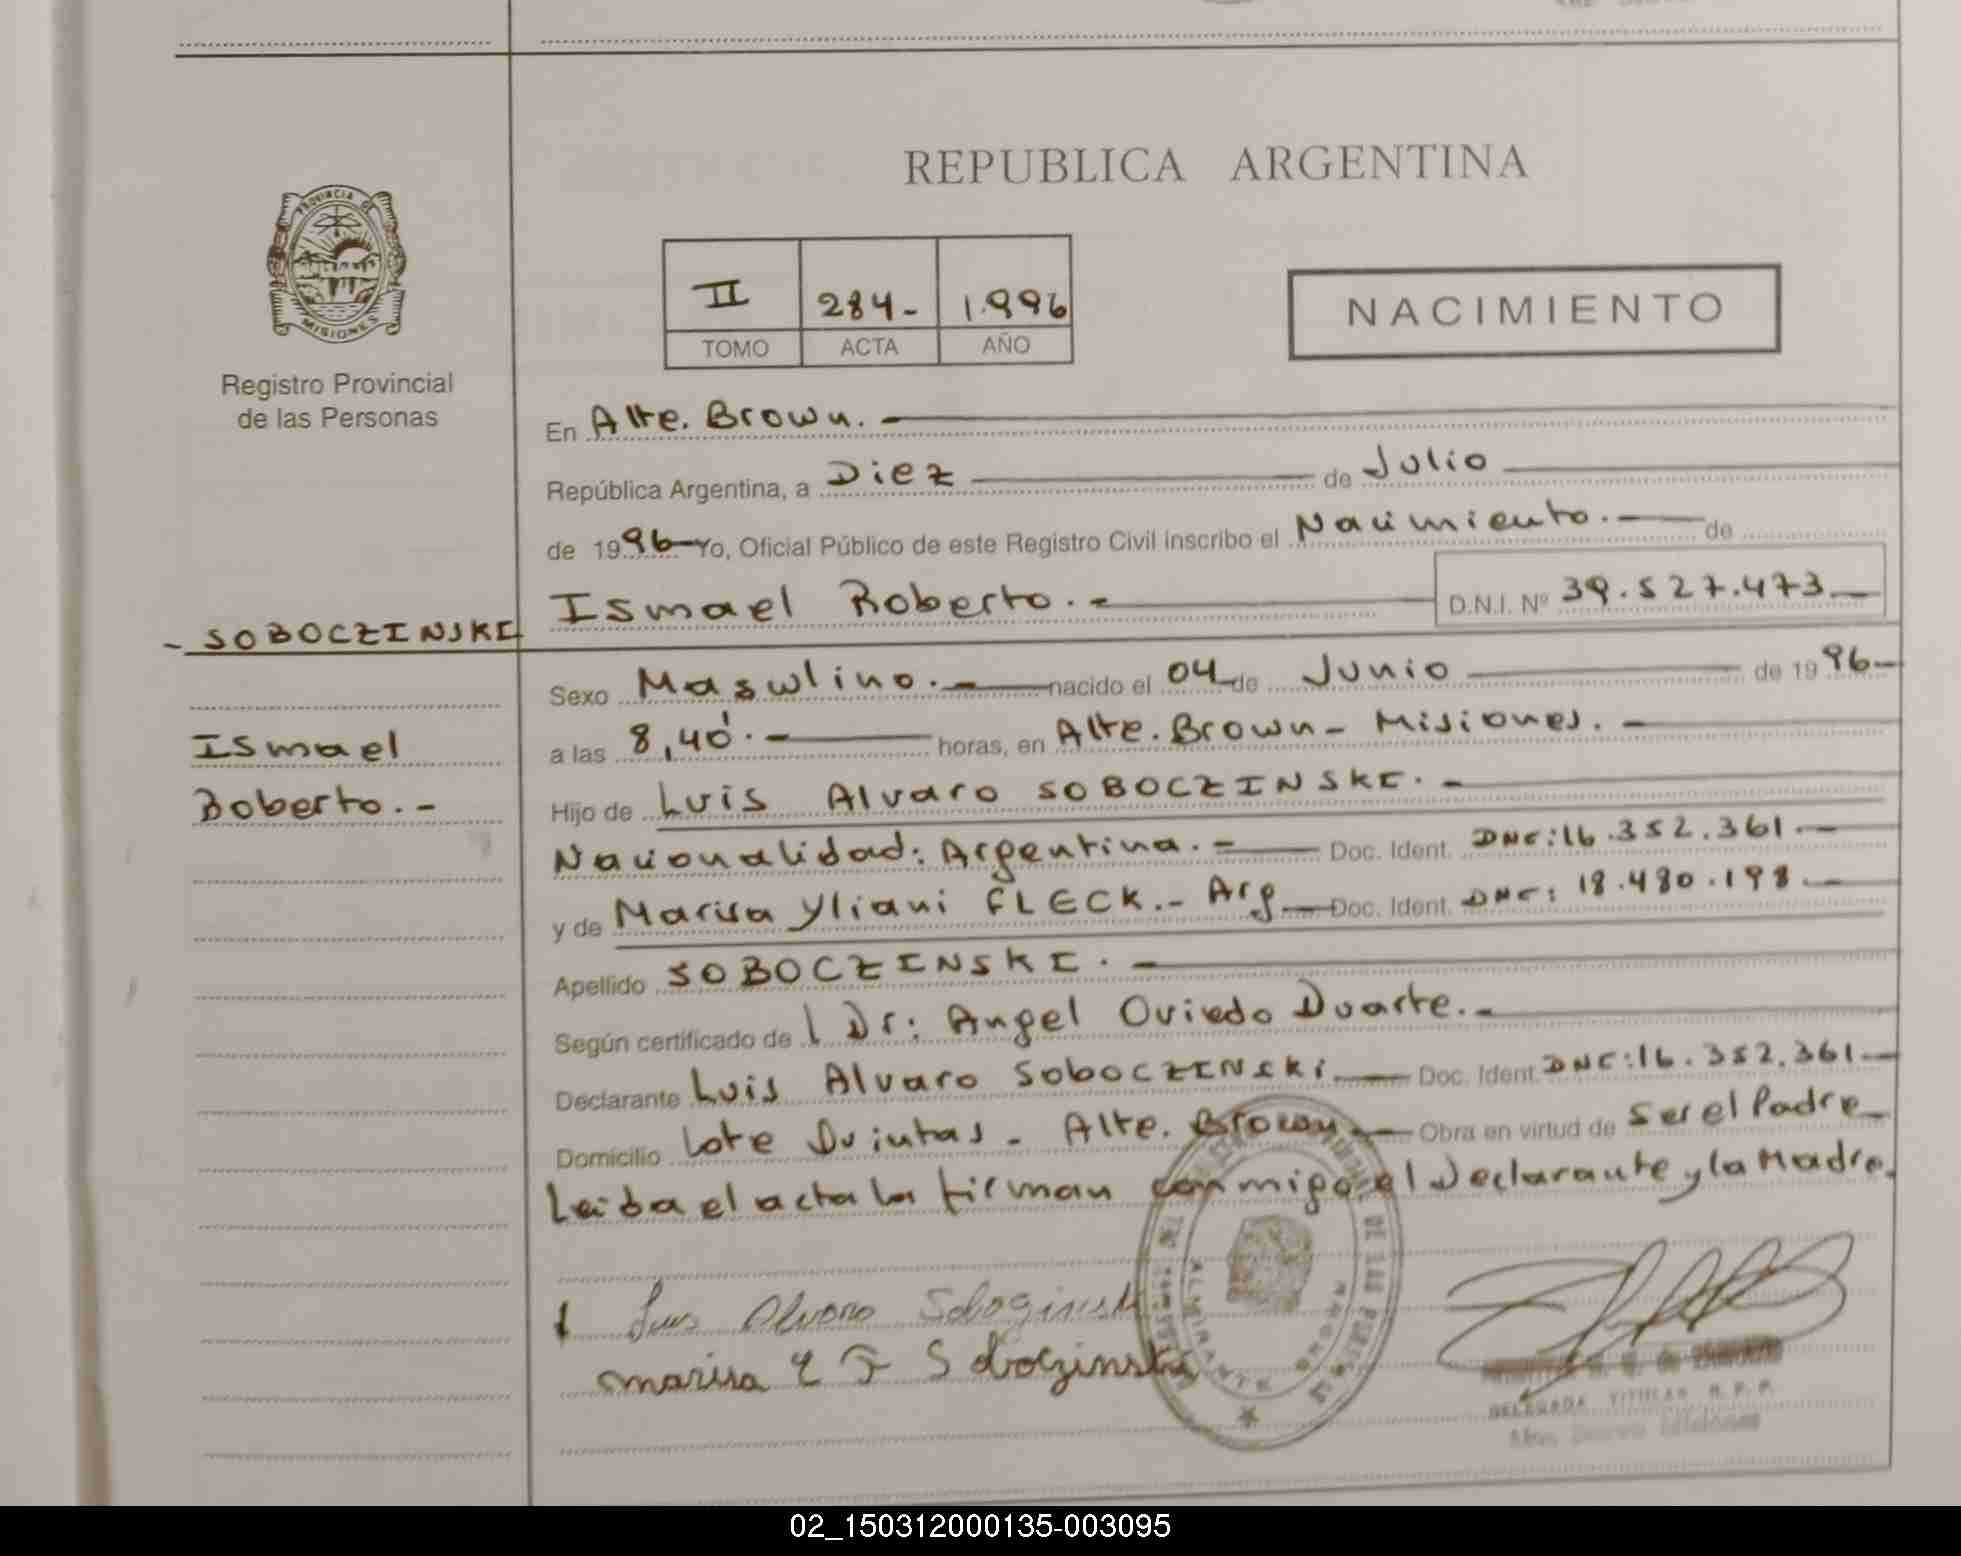 PROVINCIA DE
MISIONES
Registro Provincial
de las Personas
REPUBLICA ARGENTINA
II 284- 1.996
TOMO ACTA AÑO
NACIMIENTO
En Alte. Brown.
República Argentina, a Diez de Julio
de 1996 Yo, Oficial Público de este Registro Civil inscribo el Nacimiento. de
- SOBOCZINSKI
Ismael
Roberto.-
Ismael Roberto.- D.N.I. Nº 39.527.473
Sexo Masculino.- nacido el 04 de Junio de 1996
a las 8,40'.- horas, en Alte. Brown - Misiones.-
Hijo de Luis Alvaro SOBOCZINSKI.-
Nacionalidad: Argentina.- Doc. Ident. DNI: 16.352.361.-
y de Marisa Yliani FLECK.- Arg Doc. Ident. DNI: 18.480.198.-
Apellido SOBOCZINSKI.-
Según certificado de l Dr: Angel Oviedo Duarte.-
Declarante Luis Alvaro SOBOCZINSKi Doc. Ident. DNI: 16.352.361
Domicilio Lote Quintas - Alte. Brown Obra en virtud de Ser el Padre
Leida el acta la firman conmigo, el Declarante y la Madre.
Luis Alvaro
marisa Y F Soboczinski
ALMIRANTE BROWN
DE LAS
DELEGADA TITULAR R. P. P.
Alte. Brown Misiones
02_150312000135-003095